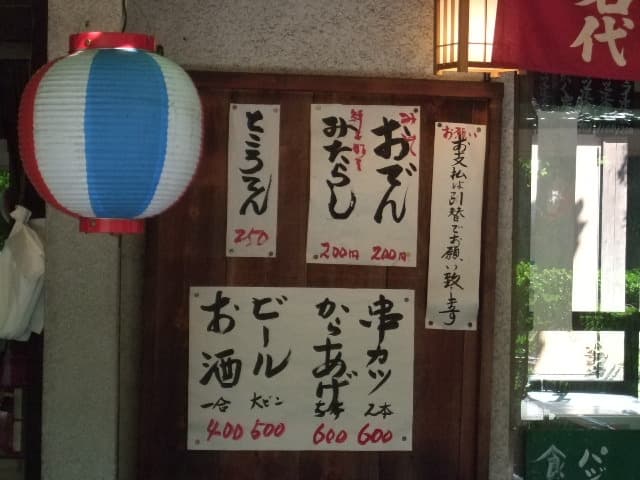 名代
お願い
お支払は引替でお願い致します
みそ
おでん
200円
みたらし
200円
ところてん
250
串カツ
2本
600
からあげ
600
ビール
大ビン
500
お酒
一合
400
パッ
食